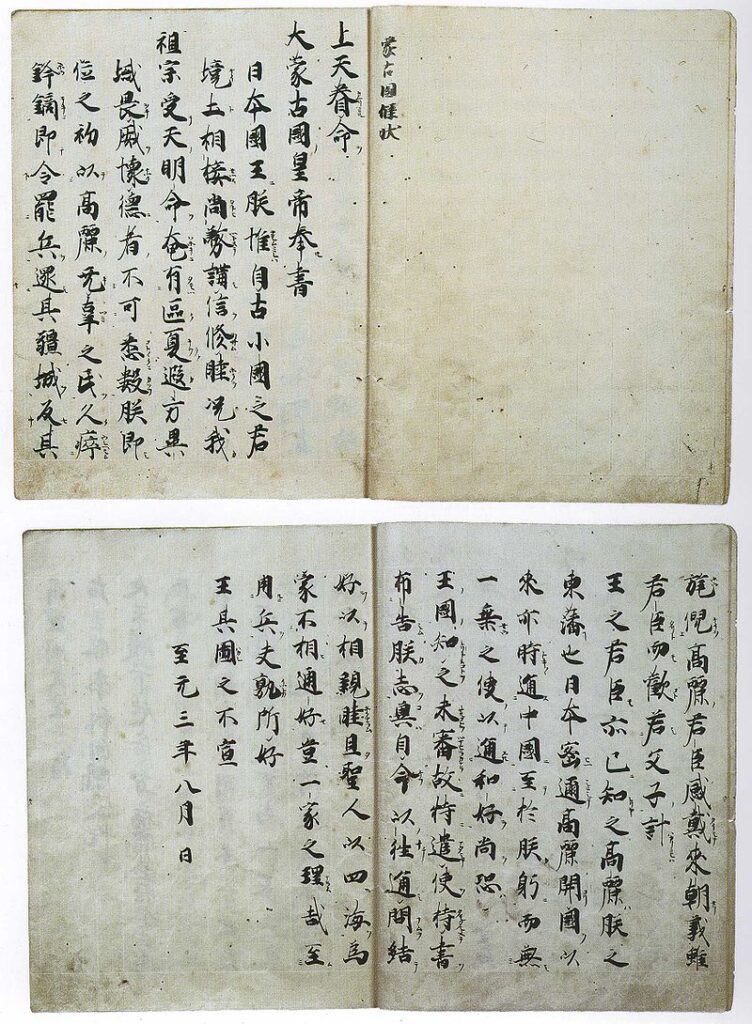 蒙古國牒状
上天眷命
大蒙古國皇帝奉書
日本國王朕惟自古小國之君
境土相接尚務講信修睦况我
祖宗受天明命奄有區夏遐方異
域畏威懷德者不可悉數朕即
位之初以高麗无辜之民久瘁
鋒鏑即令罷兵還其疆域反其
旄倪高麗君臣感戴來朝義雖
君臣而歡若父子計
王之君臣亦已知之高麗朕之
東藩也日本密迩高麗開國以
來亦時通中國至於朕躬而無
一乗之使以通和好尚恐
王國知之未審故特遣使持書
布告朕志冀自今以往通問結
好以相親睦且聖人以四海為
家不相通好豈一家之理哉至
用兵夫孰所好
王其圖之不宣
至元三年八月日